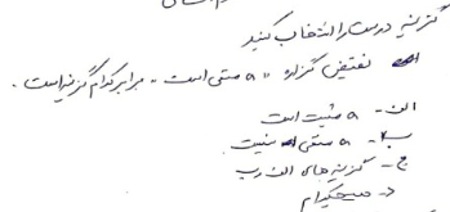 گزینه درست را انتخاب کنید
نقیض گزاره "a منفی است" برابر کدام گزینه است.
الف - a مثبت است
ب - a منفی نیست
ج - گزینه های الف و ب
د - هیچکدام